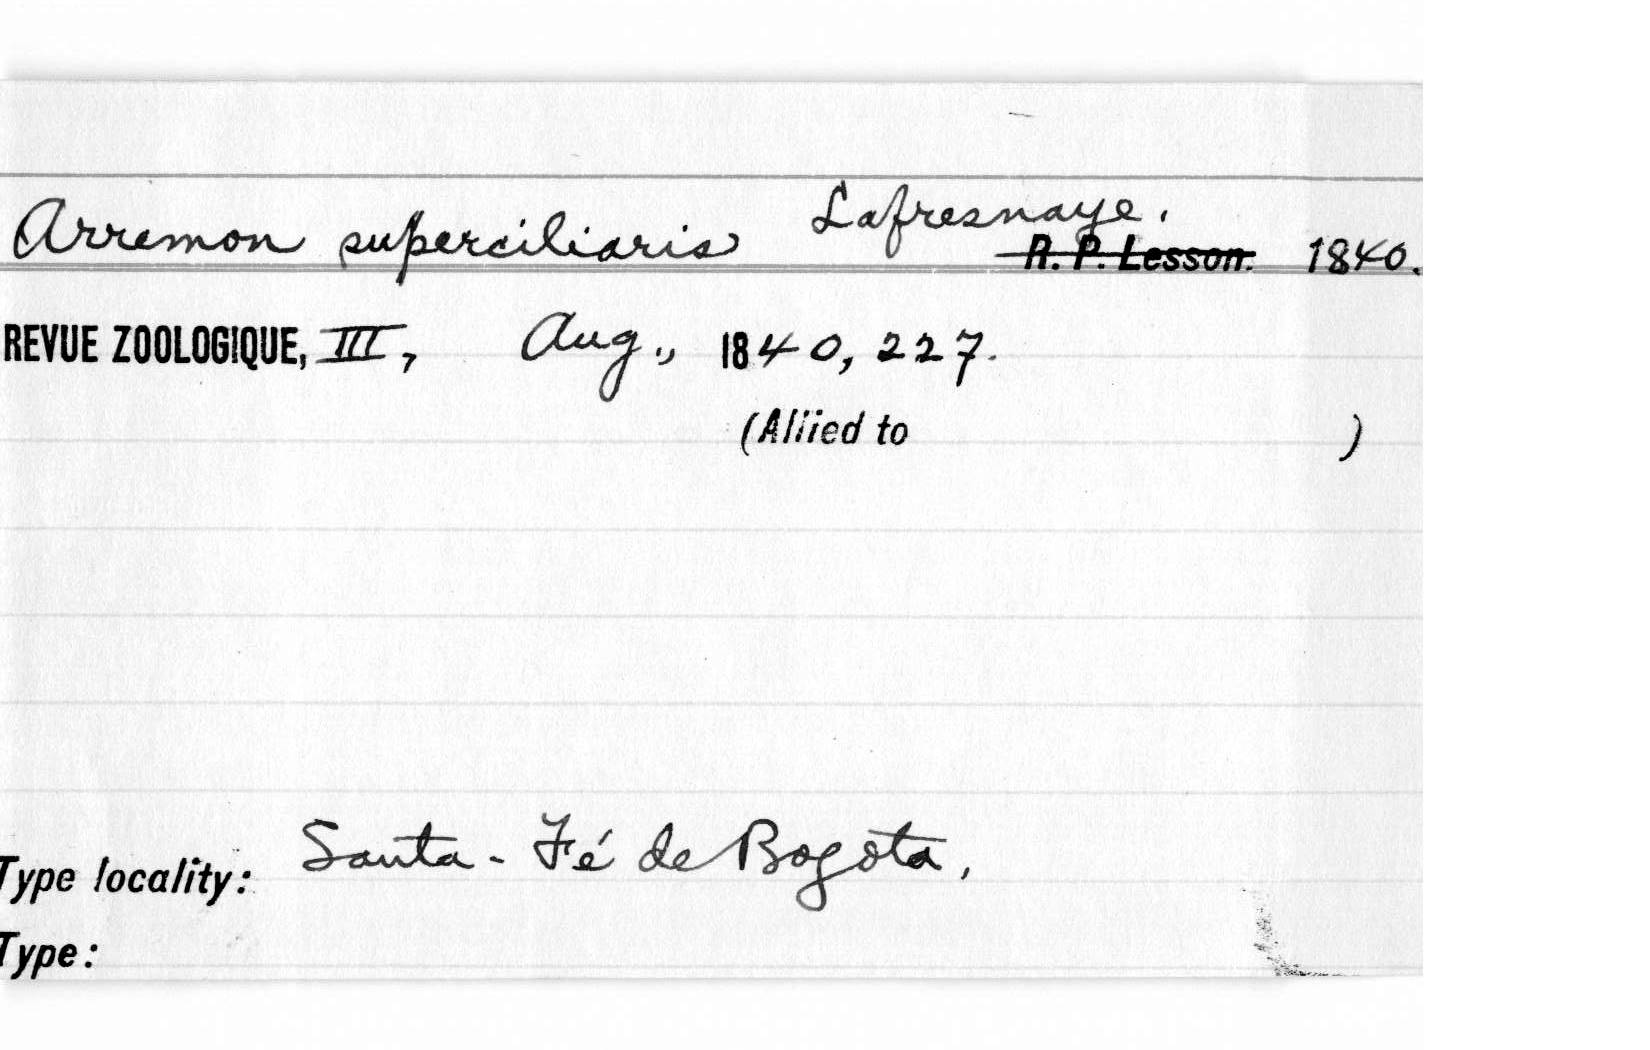 Arremon superciliaris Lafresnaye.
R. P. Lesson. 1840.
REVUE ZOOLOGIQUE, III, Aug., 1840, 227.
(Allied to )
Type locality: Santa-Fé de Bogota,
Type: